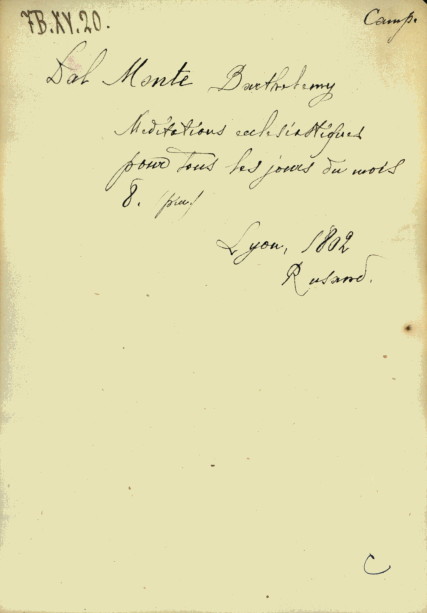 7B.XV.20.
Camp.
Dal Monte Barthelemy
Meditations eclesiastiques
pour tous les jours du mois
8.
Lyon, 1802
Rusand.
C